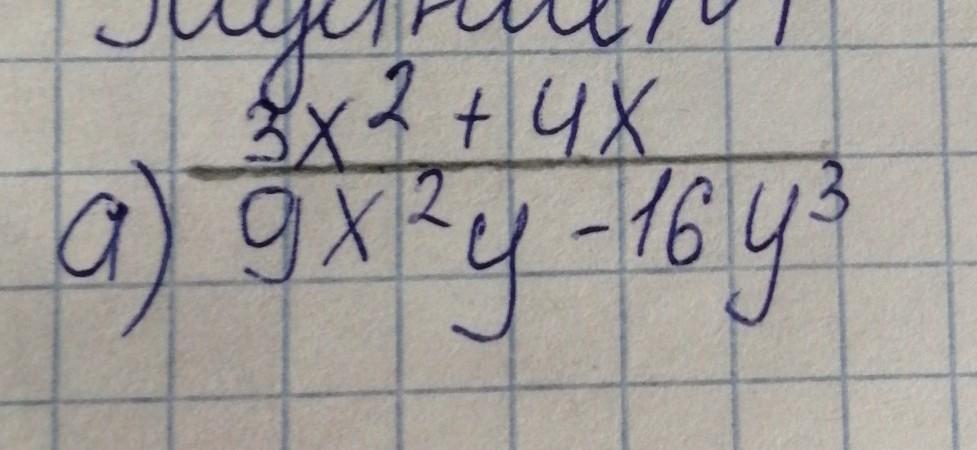 3x² + 4x
а) 9x²y - 16y³